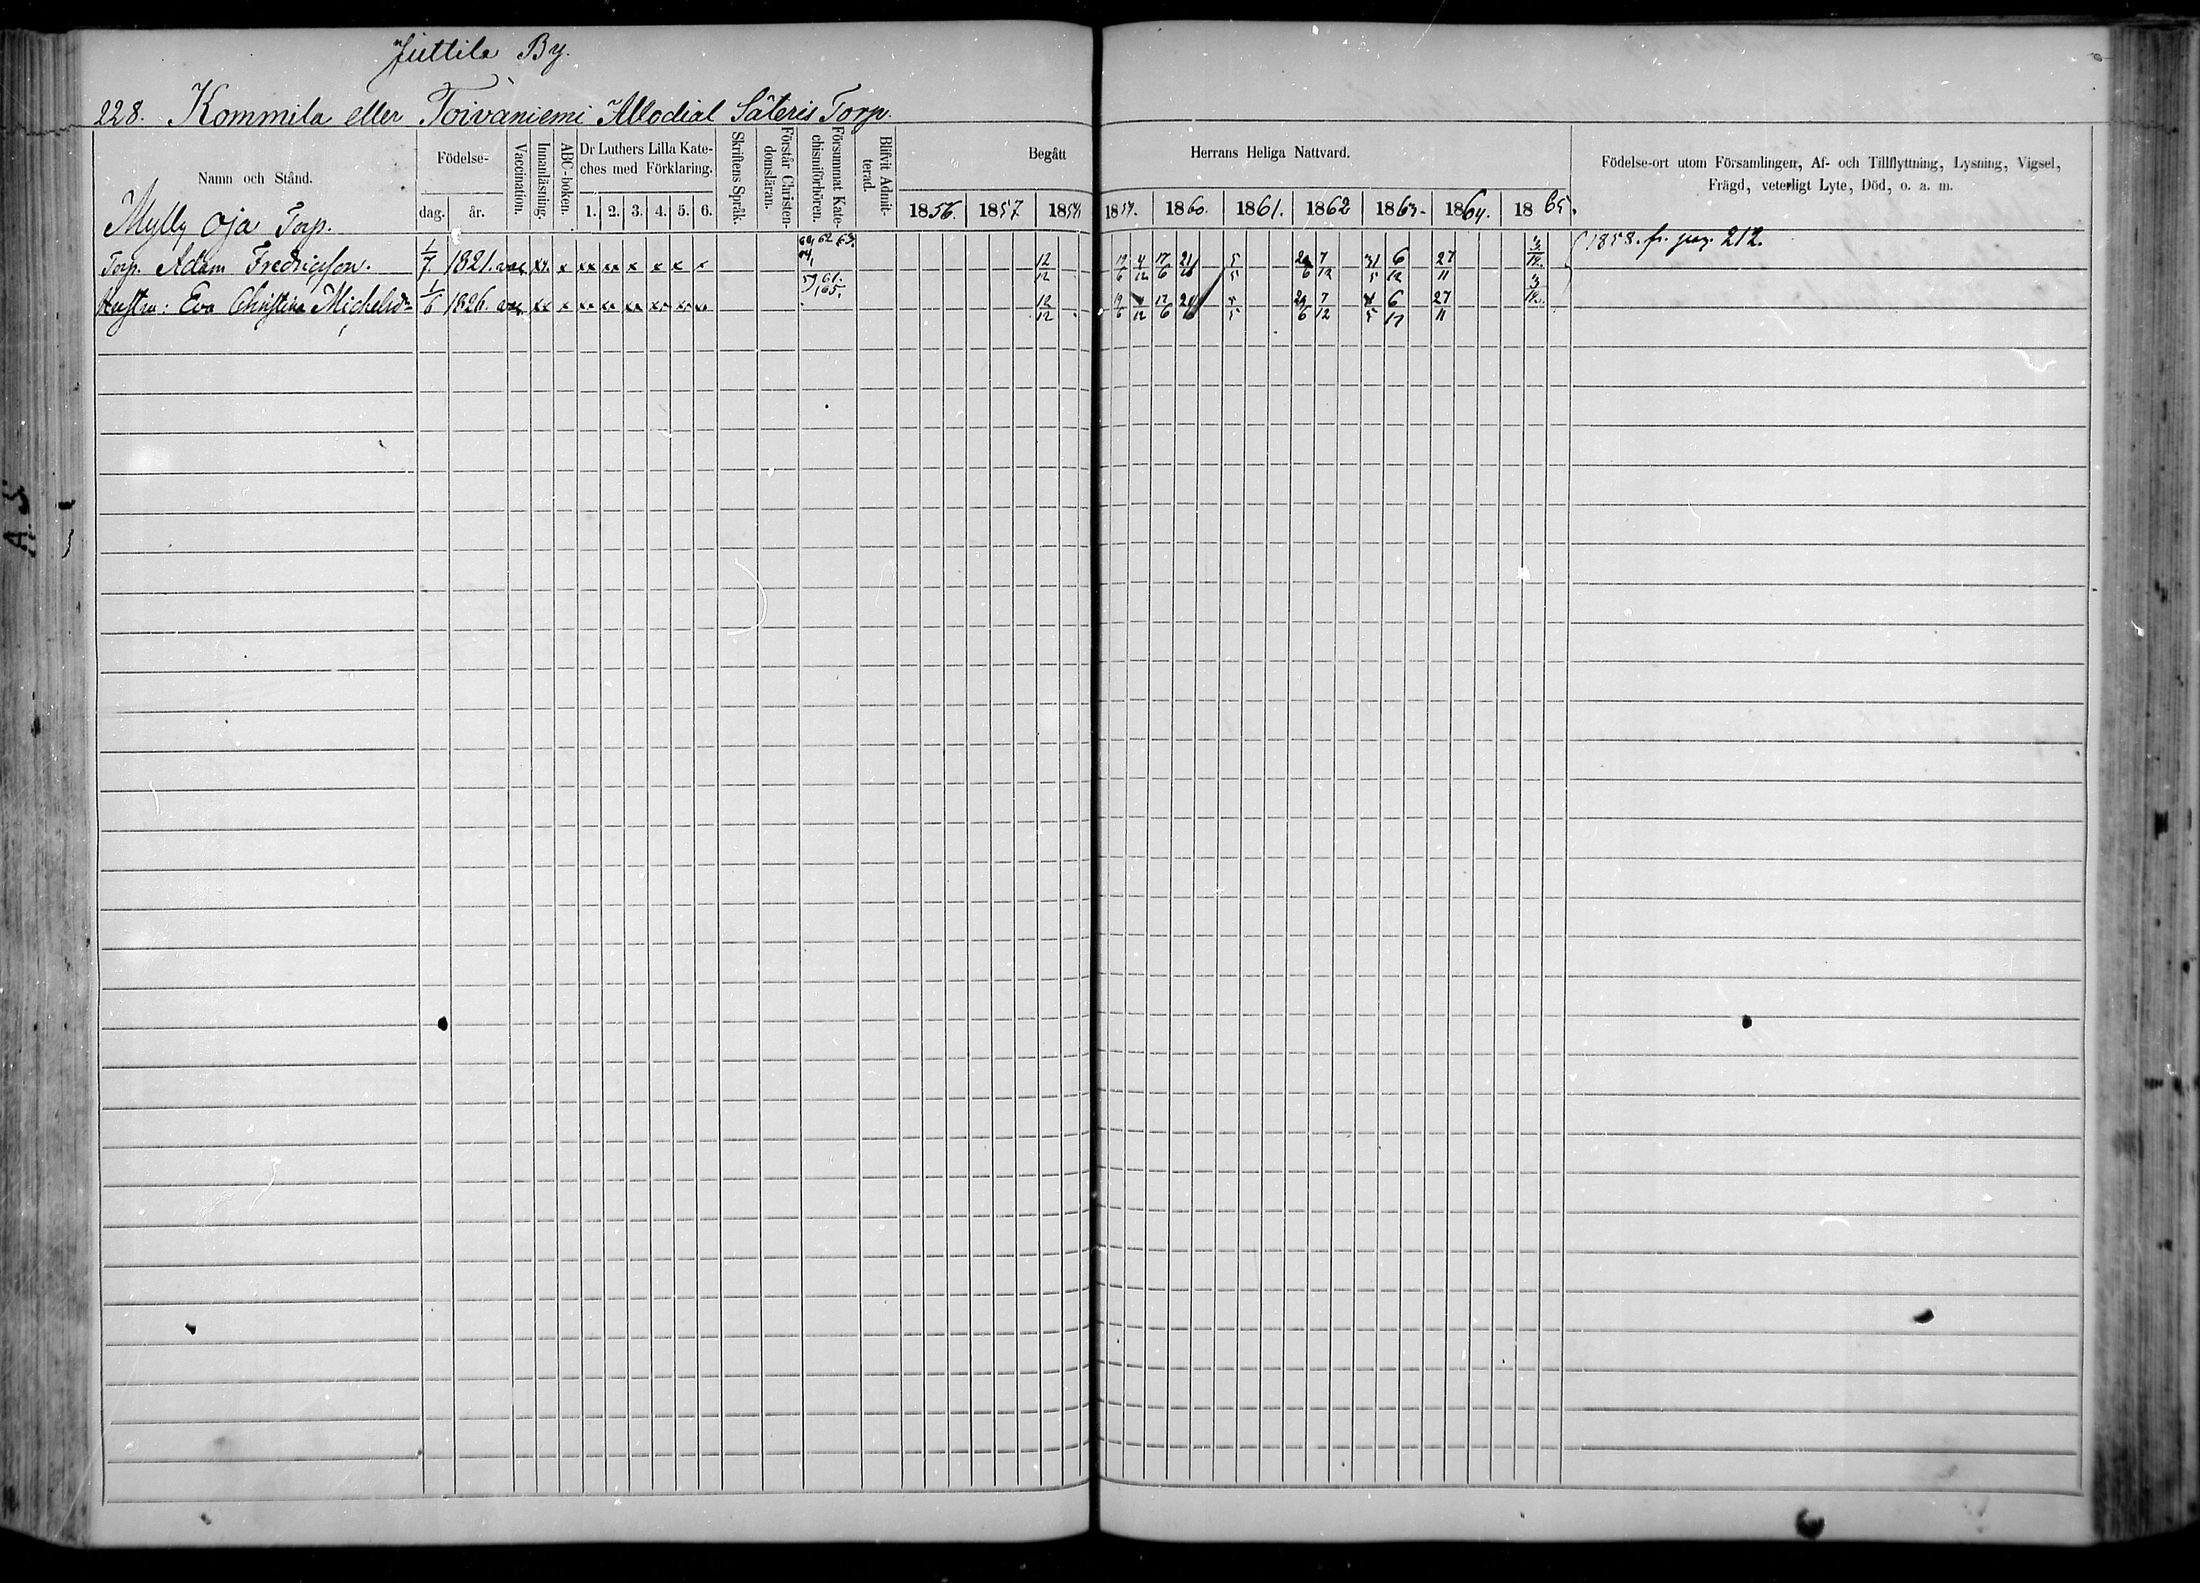 Juttila By.
228. Kommila eller Toivaniemi Allodial Säteris Torp.
Namn och Stånd.
Födelse-
dag. år.
Vaccination.
Innanläsning.
ABC-boken.
Dr Luthers Lilla Kate-
ches med Förklaring.
1. 2. 3. 4. 5. 6.
Skriftens Språk.
Förstår Christen-
domsläran.
Försummat Kate-
chismiförhören.
Blifvit Admit-
terad.
Begått Herrans Heliga Nattvard.
1856. 1857. 1858 1859. 1860. 1861. 1862 1863. 1864. 1865.
Födelse-ort utom Församlingen, Af- och Tillflyttning, Lysning, Vigsel,
Frägd, veterligt Lyte, Död, o. a. m.
Mylly oja Torp.
Torp. Adam Fredricsson. 1/7 1821. vac xx x xx xx x x x x 62 63. 12/12 19/6 4/12 17/6 21/10 5/5 29/6 7/12 31/5 6/12 27/11 1858. fr. pag. 212.
Hustru: Eva Christina Michelsdr 1/6 1826. vac xx x xx xx xx xx xx 59, 61. 65. 12/12 19/6 4/12 17/6 5/5 29/6 7/12 6/12 27/11